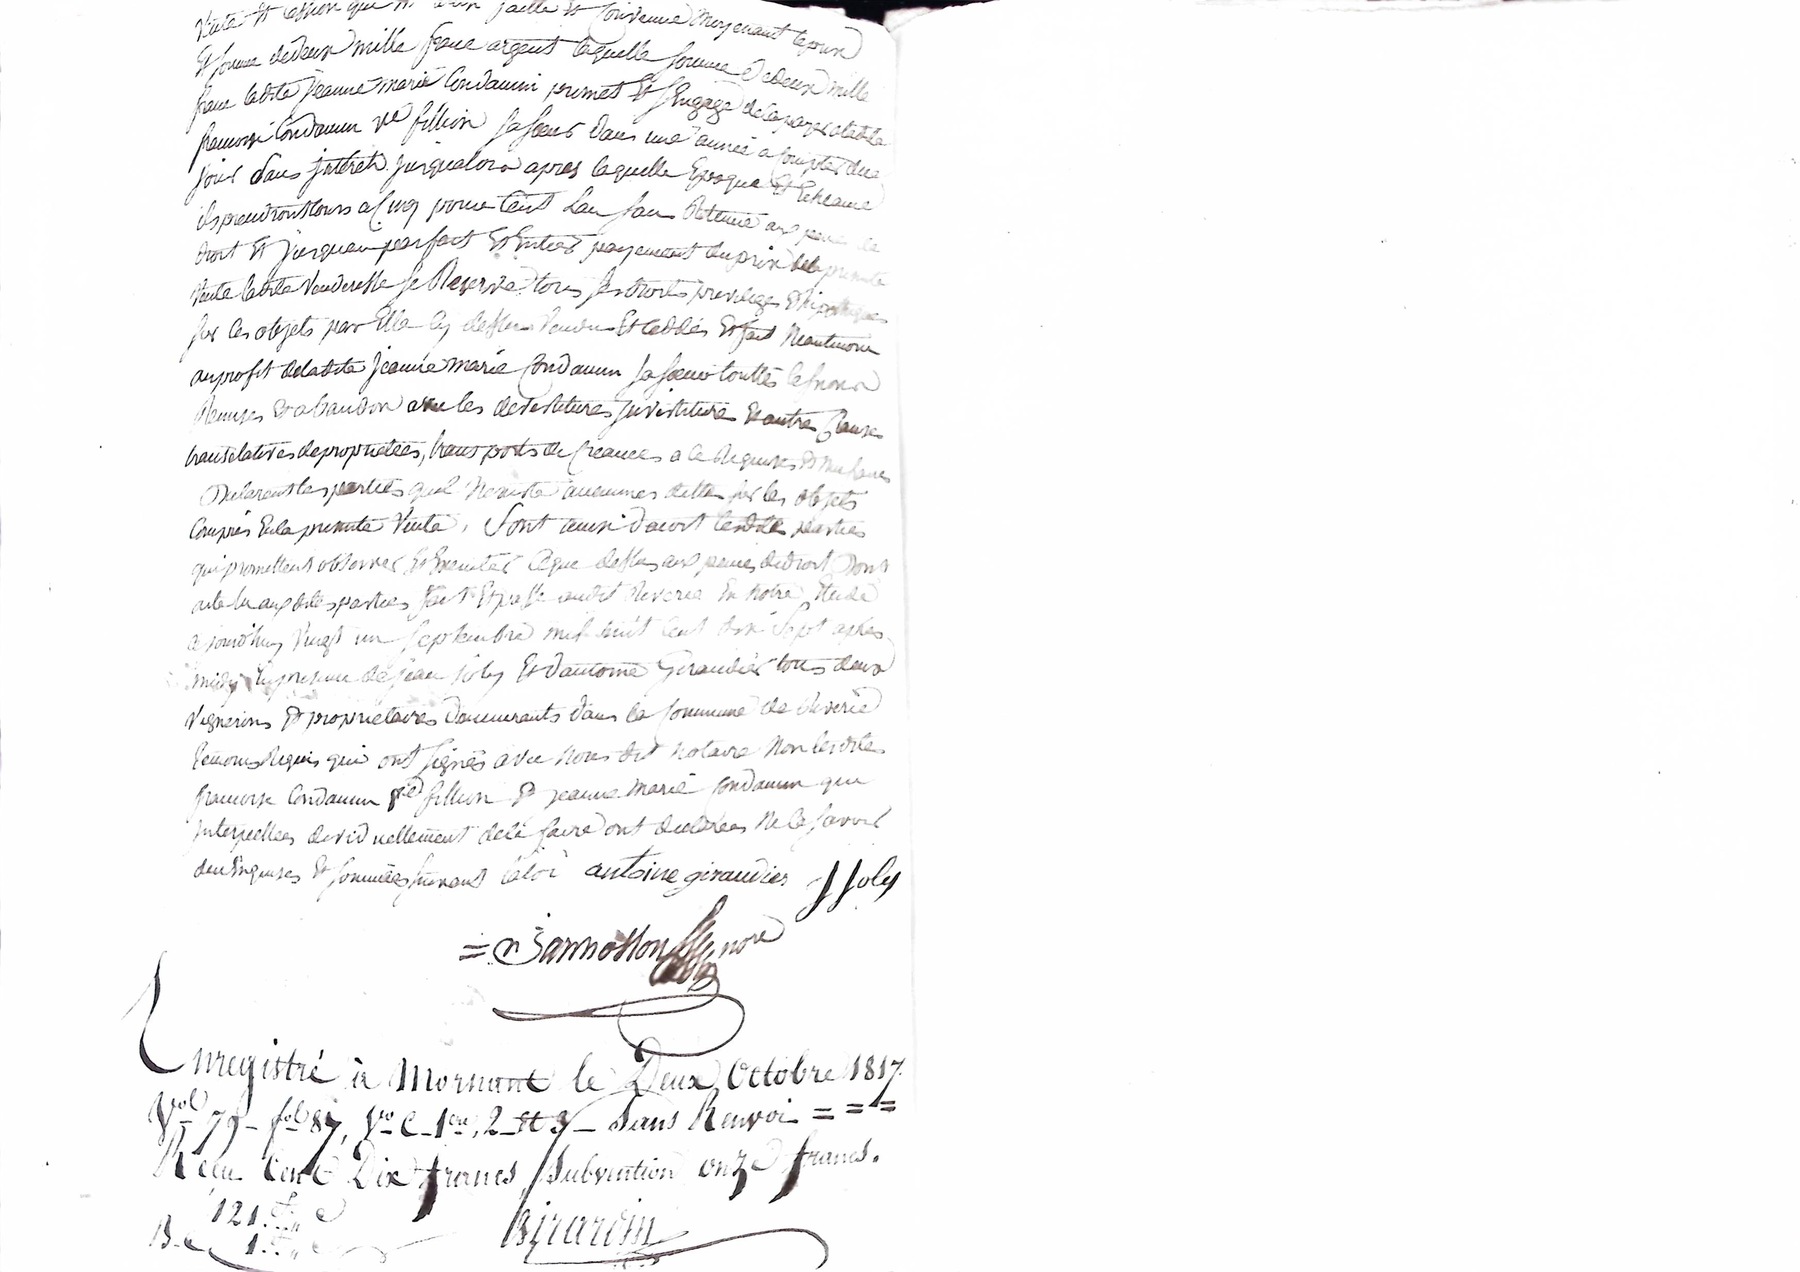 vente et cession qui a été faitte et convenue moyenant le prix
et somme de deux mille franc argent laquelle somme de deux mille
franc ladite jeanne marie Condamin promet et s'engage de la payer a ladite
francoise Condamin ve fillion sa soeur dans une année a compter de ce
jour sans intéreth jusqualors apres laquelle Epoque
ils prendront cours a cinq pour cent L'an sans Retenue aux peines de
droit et jusquau parfait et Entier payement du prix de la presente
vente ladite Venderesse se Reserve tous ses droits privileges et hipotheques
sur les objets par Elle cy dessus vendus Et ceddés Et fait Neantmoins
au profit de ladite jeanne marie Condamin sa soeur touttes
Remises et abandon avec les devestitures investitures et autres Clauses
translatives de proprietées, transports de Creances a ce Requises et
Declarent les parties quil N'existe aucunes dettes sur les objets
Compris En la presente Vente. Sont ainsi d'acord lesdites parties
qui promettent observer et Executer ce que dessus aux peines de droit Dont
acte lu aux dites parties fait Et passé audit Riverie En notre Etude
a jourd'huy vingt un septembre mil huit cent dix sept apres
midy En presence de jean joly Et d'antoine Giraudier tous deux
Vignerons et proprietaires demeurants dans la Commune de Riverie
temoins Requis qui ont signés avec nous dit notaire Non lesdites
francoise Condamin ve fillion et jeanne marie Condamin qui
interpellées dividuellement de le faire ont declarées Ne le savoir
de ce Enquises et sommées suivant la loi antoine giraudier J Joly
nore
Enregistré à Mornant le Deux Octobre 1817.
Vol 79 - fol 87, Vo C. 1ere, 2 et 3 - Sans Renvoi = = =
Recu Cent Dix francs, Subvention onze francs.
121. f. " c
1. f. " c
Girardin